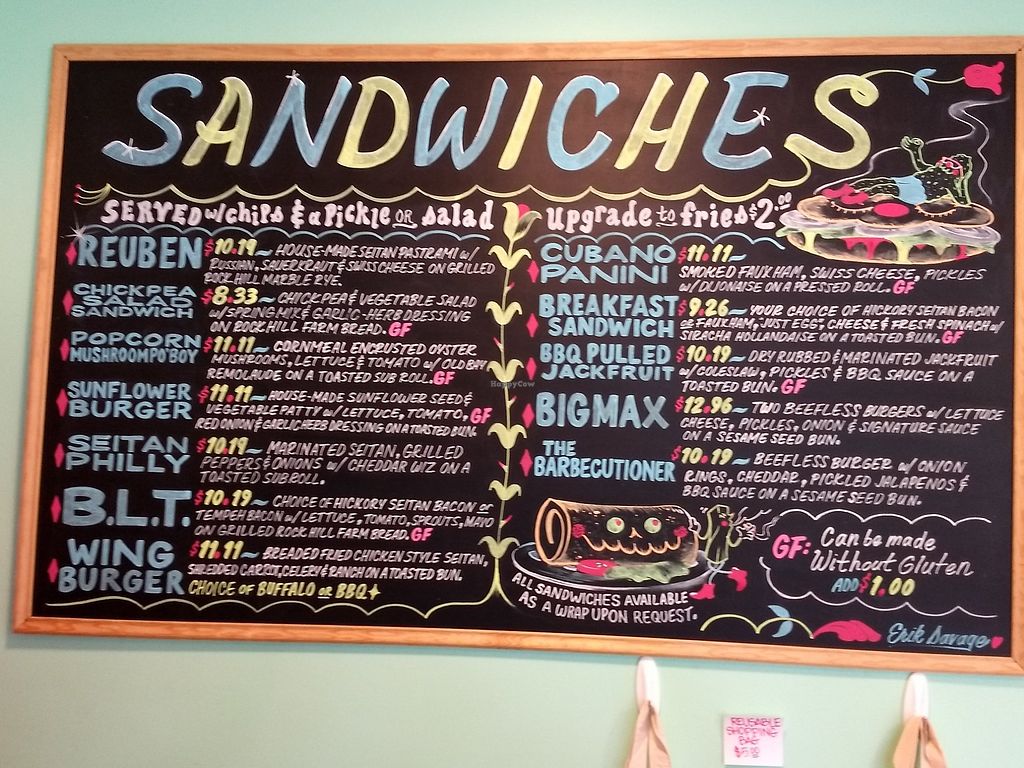 SANDWICHES
SERVED w/chips & a Pickle OR Salad
upgrade to fries $2.00
REUBEN $10.19~ HOUSE-MADE SEITAN PASTRAMI W/
RUSSIAN, SAUERKRAUT & SWISS CHEESE ON GRILLED
ROCK HILL MARBLE RYE.
CHICKPEA SALAD SANDWICH $8.33~ CHICKPEA & VEGETABLE SALAD
W/SPRING MIX & GARLIC-HERB DRESSING
ON ROCK HILL FARM BREAD. GF
POPCORN MUSHROOM PO'BOY $11.11~ CORNMEAL ENCRUSTED OYSTER
MUSHROOMS, LETTUCE & TOMATO W/ OLD BAY
REMOLAUDE ON A TOASTED SUB ROLL. GF
SUNFLOWER BURGER $11.11~ HOUSE-MADE SUNFLOWER SEED &
VEGETABLE PATTY W/ LETTUCE, TOMATO, GF
RED ONION & GARLIC HERB DRESSING ON A TOASTED BUN.
SEITAN PHILLY $10.19~ MARINATED SEITAN, GRILLED
PEPPERS & ONIONS W/ CHEDDAR WIZ ON A
TOASTED SUB ROLL.
B.L.T. $10.19~ CHOICE OF HICKORY SEITAN BACON or
TEMPEH BACON W/ LETTUCE, TOMATO, SPROUTS, MAYO
ON GRILLED ROCK HILL FARM BREAD. GF
WING BURGER $11.11~ BREADED FRIED CHICKEN STYLE SEITAN,
SHREDDED CARROT, CELERY & RANCH ON A TOASTED BUN.
CHOICE OF BUFFALO OR BBQ
CUBANO PANINI $11.11~
SMOKED FAUX HAM, SWISS CHEESE, PICKLES
W/ DIJONAISE ON A PRESSED ROLL. GF
BREAKFAST SANDWICH $9.26~ YOUR CHOICE OF HICKORY SEITAN BACON
OR FAUX HAM, JUST EGG, CHEESE & FRESH SPINACH W/
SIRACHA HOLLANDAISE ON A TOASTED BUN. GF
BBQ PULLED JACKFRUIT $10.19~ DRY RUBBED & MARINATED JACKFRUIT
W/COLESLAW, PICKLES & BBQ SAUCE ON A
TOASTED BUN. GF
BIG MAX $12.96~ TWO BEEFLESS BURGERS W/ LETTUCE
CHEESE, PICKLES, ONION & SIGNATURE SAUCE
ON A SESAME SEED BUN.
THE BARBECUTIONER $10.19~ BEEFLESS BURGER W/ ONION
RINGS, CHEDDAR, PICKLED JALAPENOS &
BBQ SAUCE ON A SESAME SEED BUN.
ALL SANDWICHES AVAILABLE
AS A WRAP UPON REQUEST.
GF: Can be made
Without Gluten
ADD $1.00
Erik Savage
HappyCow
REUSABLE
SHOPPING
BAG